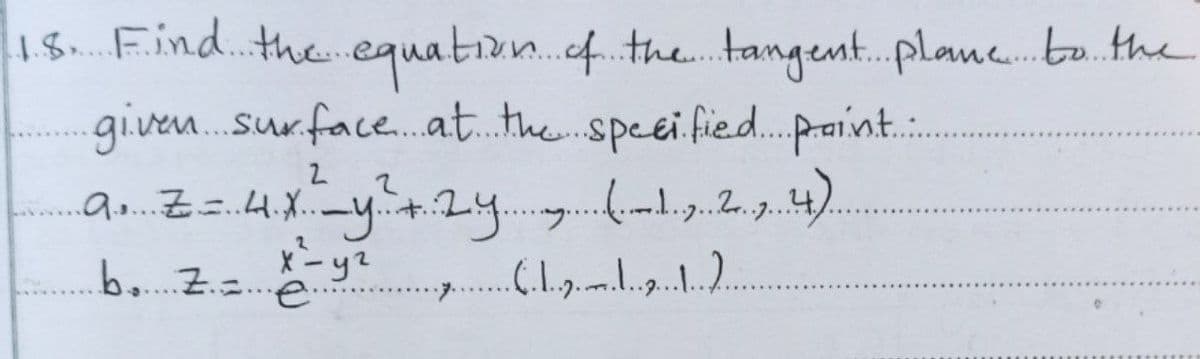 18. Find the equation of the tangent plane to the
given surface at the specified point :
a. z = 4x² - y² + 2y , (-1, 2, 4)
b. z = e^(x² - y²) , (1, -1, 1)